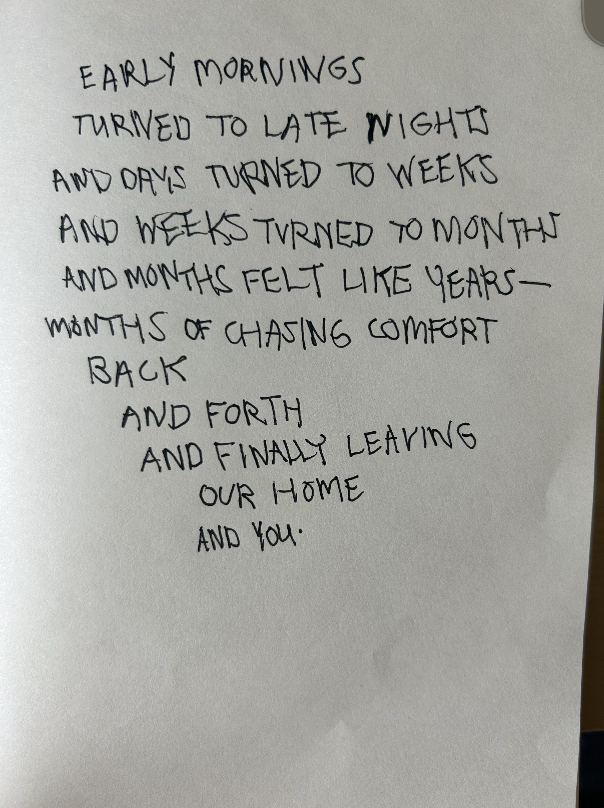 EARLY MORNINGS
TURNED TO LATE NIGHTS
AND DAYS TURNED TO WEEKS
AND WEEKS TURNED TO MONTHS
AND MONTHS FELT LIKE YEARS—
MONTHS OF CHASING COMFORT
BACK
AND FORTH
AND FINALLY LEAVING
OUR HOME
AND YOU.